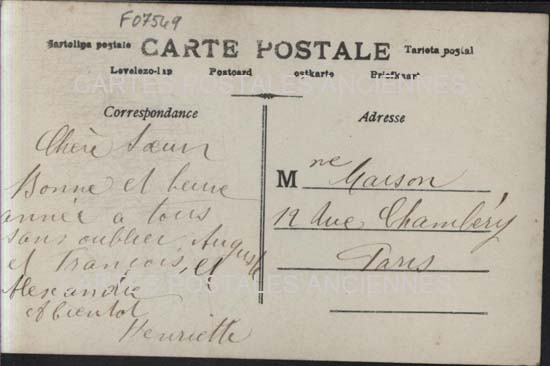 F07549
CARTE POSTALE
Cartolina postale
Tarjeta postal
Levelezo-lap
Postcard
Postkarte
Briefkaart
CARTES POSTALES ANCIENNES
Correspondance
Chère Sœur
Bonne et heure
année a tous
sans oublier Auguste
et François, et
Alexandre
A bientot
Henriette
Adresse
Mme Maison
12 Rue Chambéry
Paris
CARTES POSTALES ANCIENNES